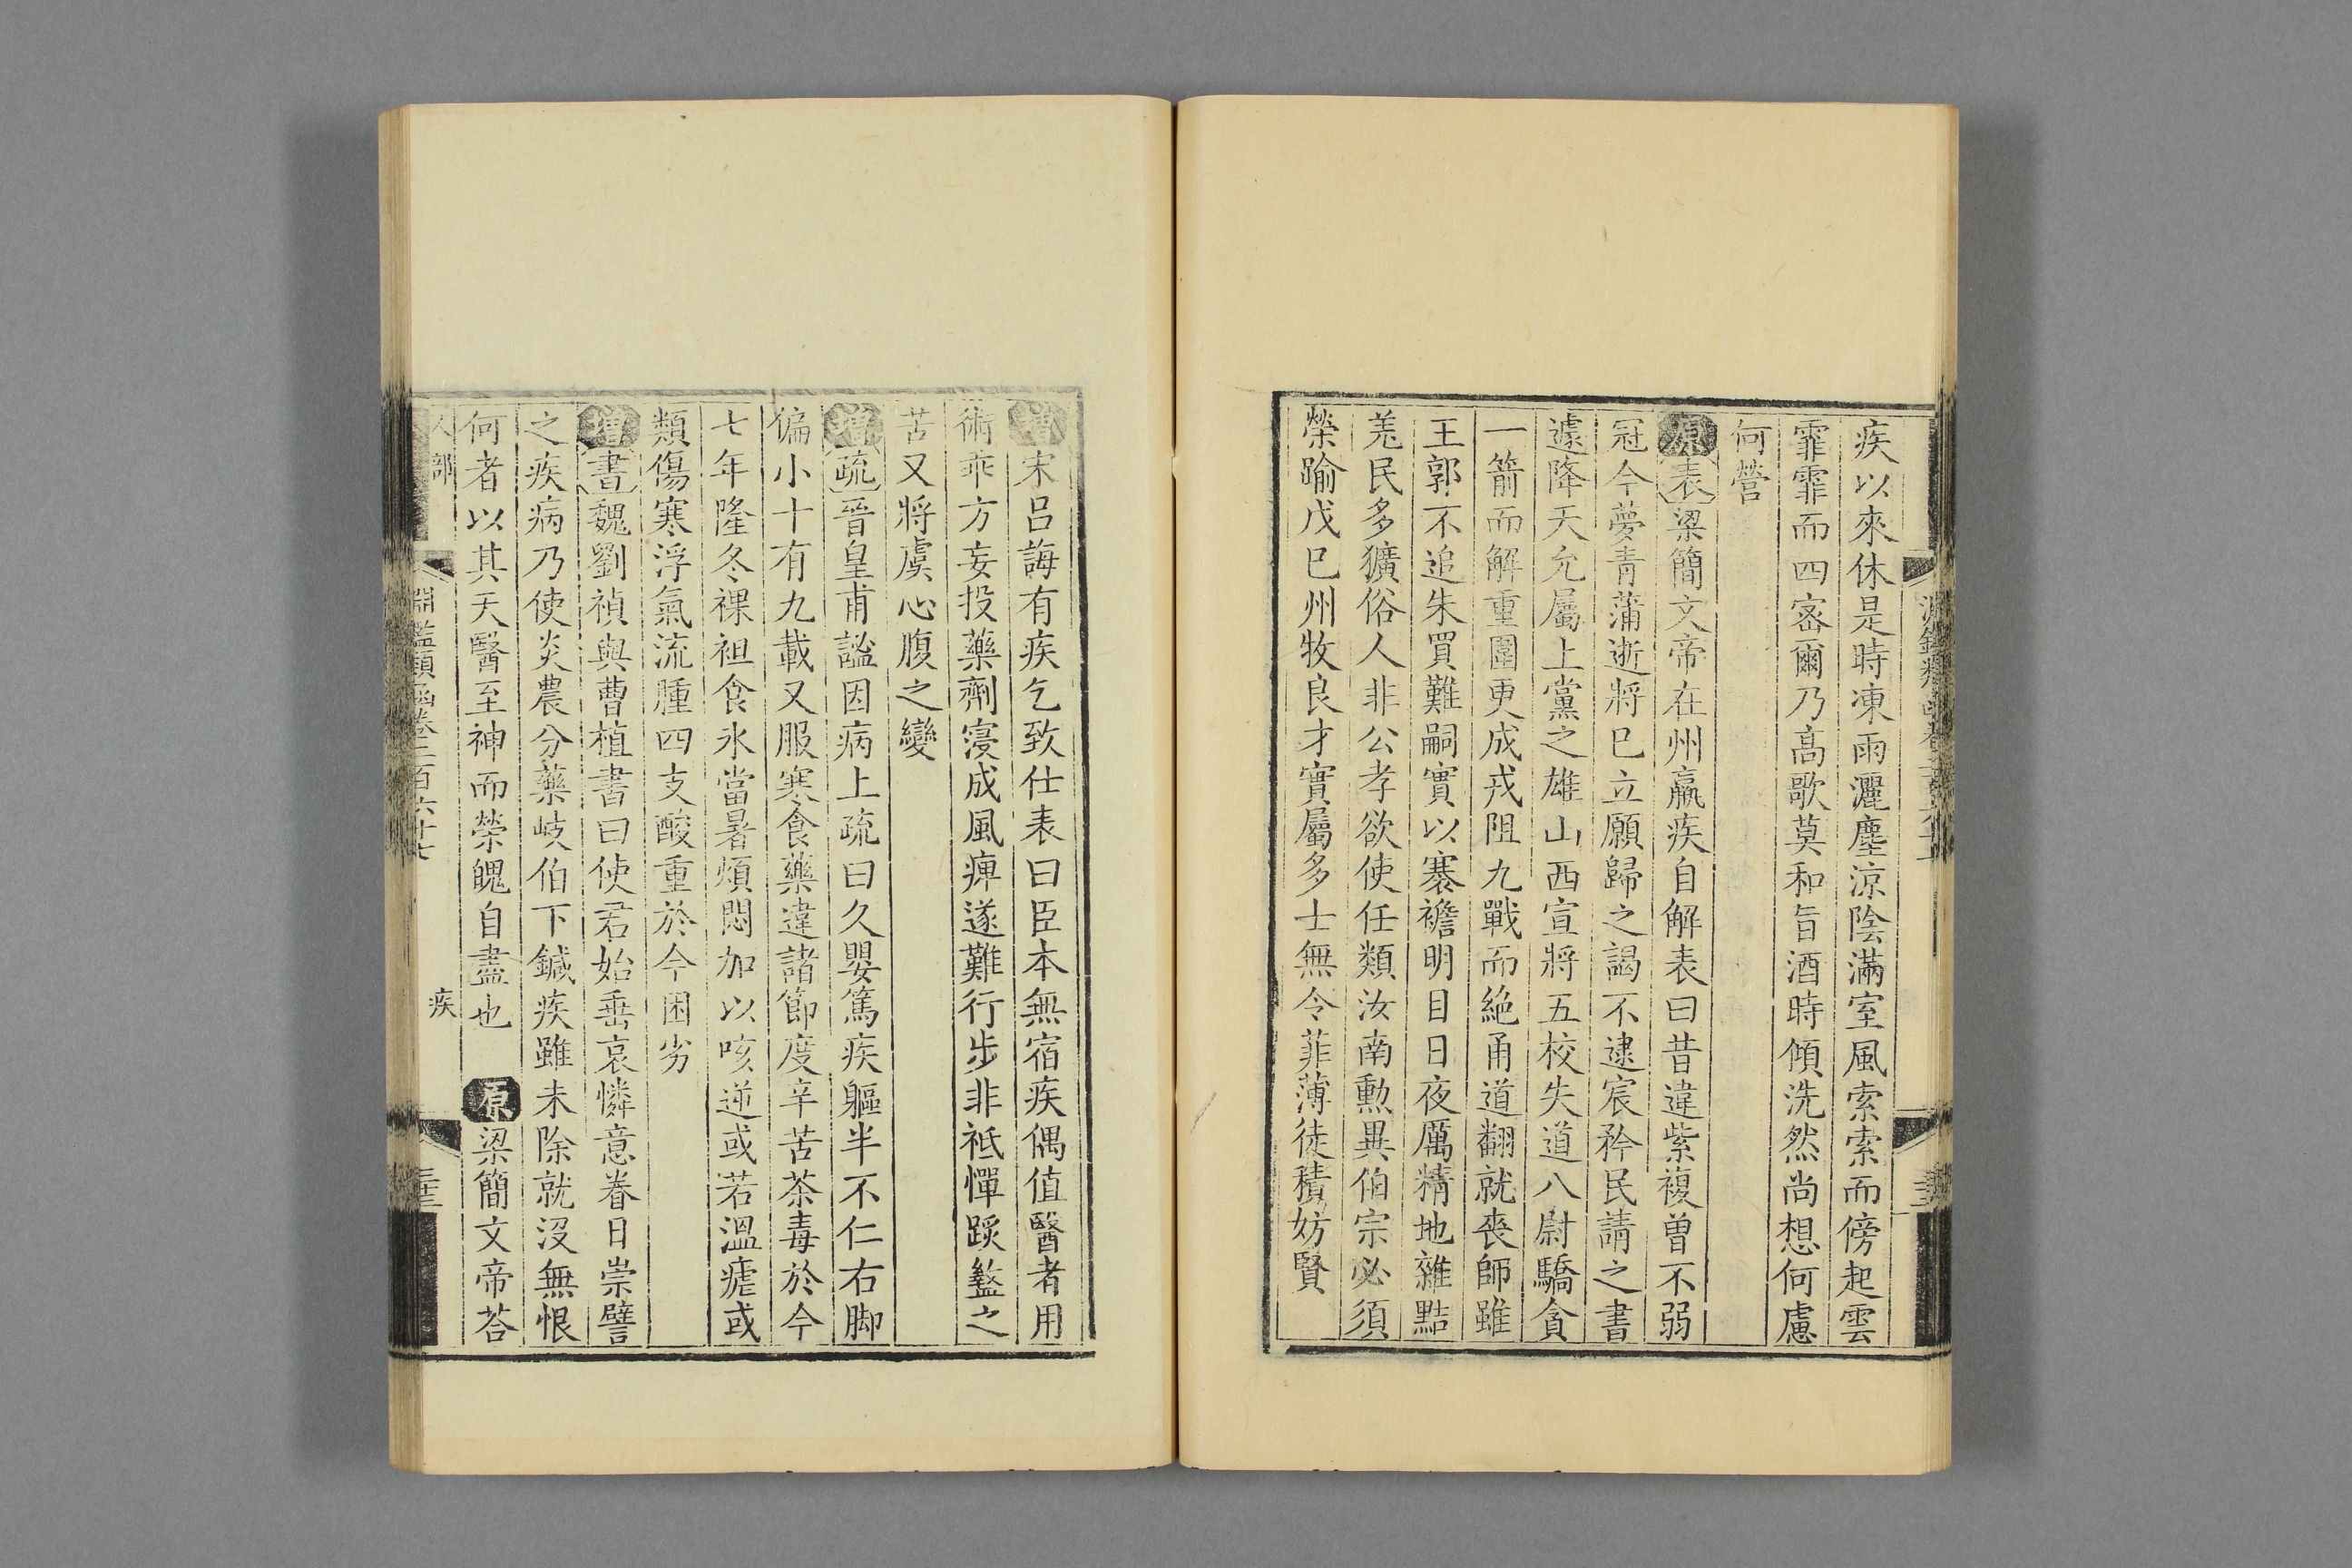 疾以來休是時凍雨灑塵涼陰滿室風索索而傍起雲
霏霏而四密爾乃高歌莫和旨酒時傾洗然尚想何慮
何營
原表梁簡文帝在州羸疾自解表曰昔違紫複曾不弱
冠今夢青蒲逝將已立願歸之謁不逮宸矜民請之書
遽降天允屬上黨之雄山西宣將五校失道八尉驕貪
一箭而解重圍更成戎阻九戰而絕甬道翻就喪師雖
王郭不追朱買難嗣實以褰襜明目日夜厲精地雜黠
羌民多獷俗人非公孝欲使任類汝南勳異伯宗必須
榮踰戊巳州牧良才實屬多士無令菲薄徒積妨賢
增宋呂誨有疾乞致仕表曰臣本無宿疾偶值醫者用
術乖方妄投藥劑寖成風痺遂難行步非祗憚蹊盭之
苦又將虞心腹之變
增疏晉皇甫謐因病上疏曰久嬰篤疾軀半不仁右脚
偏小十有九載又服寒食藥違諸節度辛苦荼毒於今
七年隆冬裸袒食氷當暑煩悶加以咳逆或若溫瘧或
類傷寒浮氣流腫四支酸重於今困劣
增書魏劉禎與曹植書曰使君始垂哀憐意眷日崇譬
之疾病乃使炎農分藥岐伯下鍼疾雖未除就沒無恨
何者以其天醫至神而榮魄自盡也 原梁簡文帝荅
人部 淵鑑類函卷二百六十七 疾